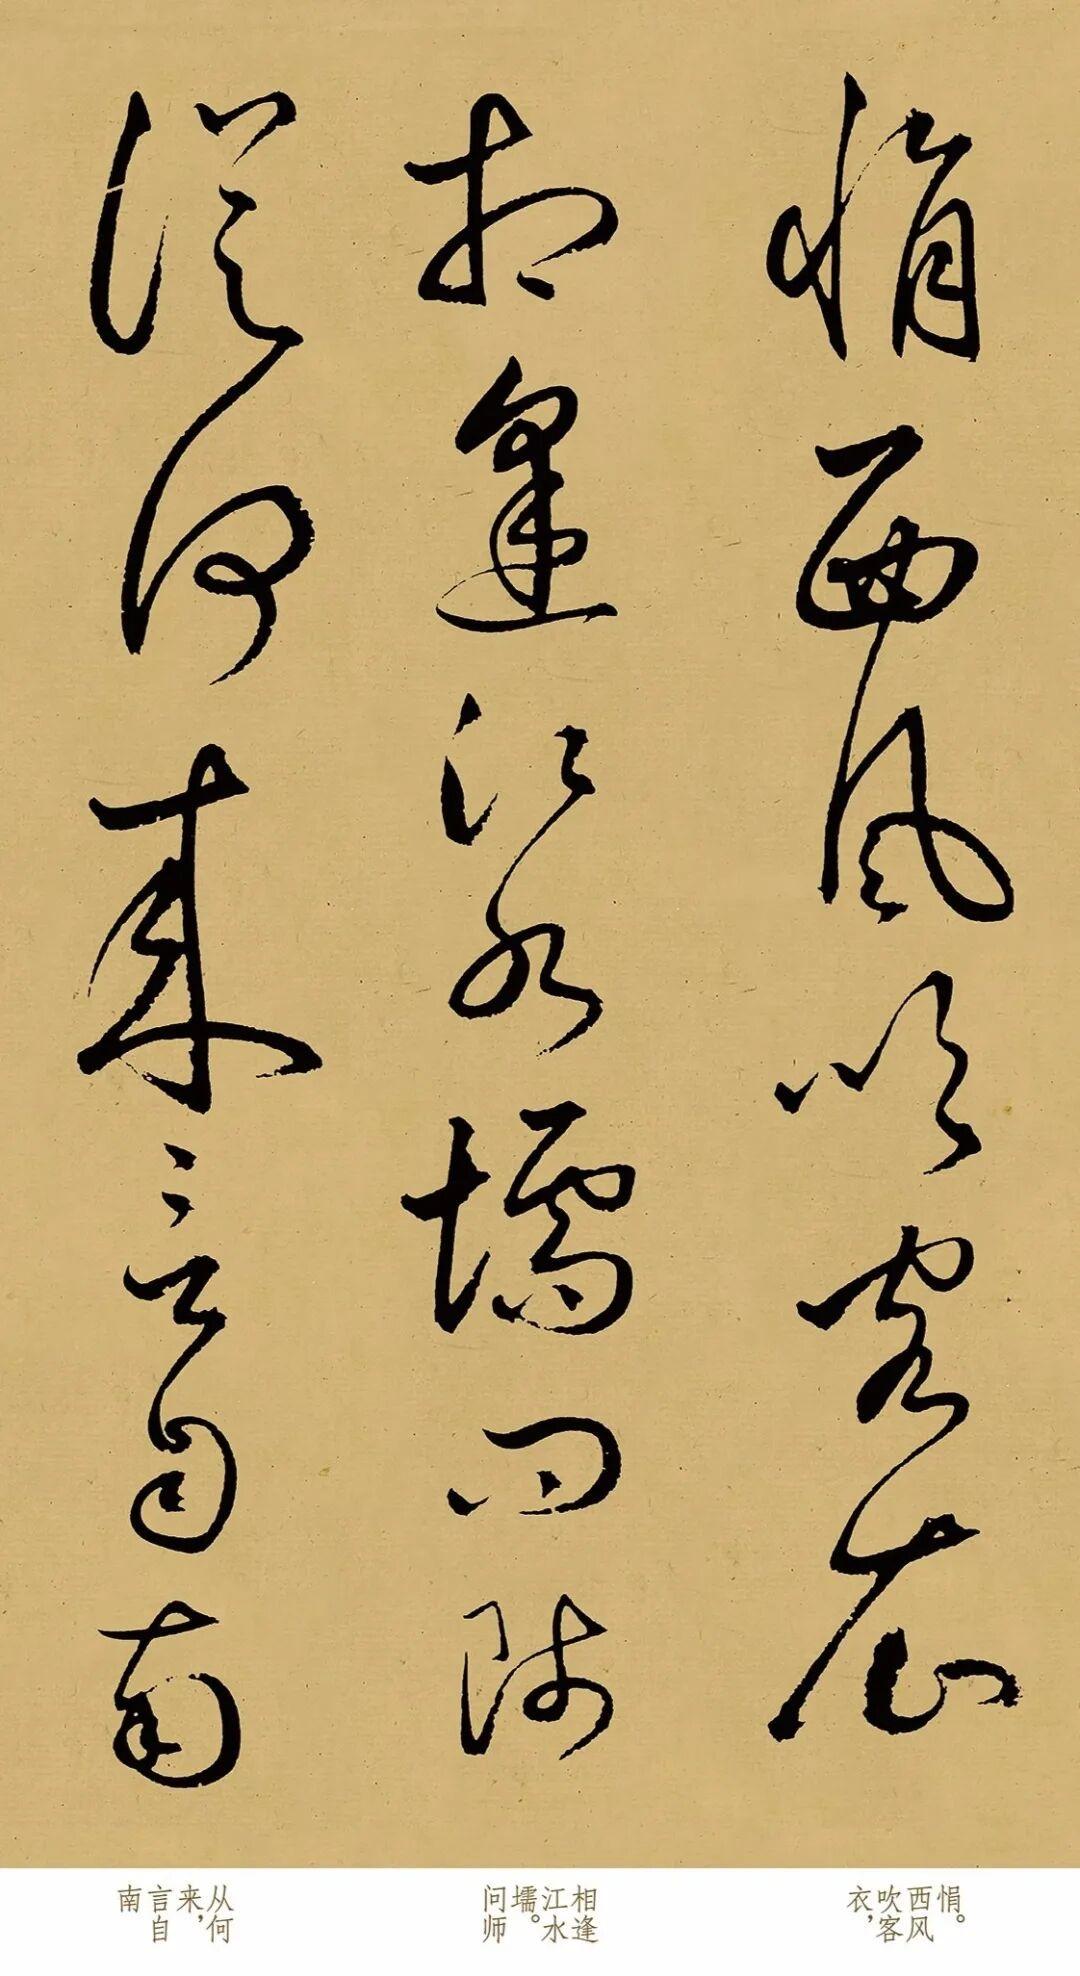 悄西风吹客衣
相逢江水壖问师
从何来言自南
悁。
西风
吹客
衣，
相逢
江水
壖。
问师
从何
来，
言自
南